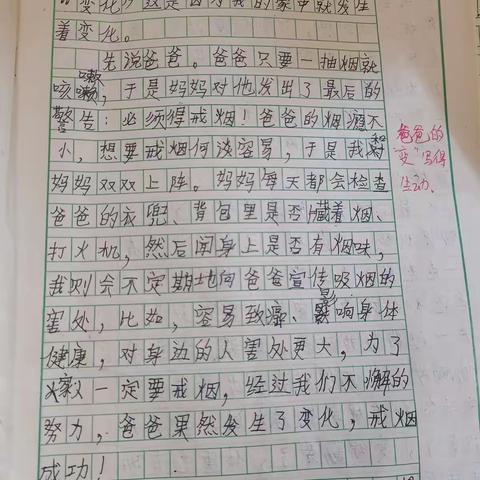 "变化",这是因为我的家中就发生
着变化。
先说爸爸。爸爸只要一抽烟就
咳嗽,于是妈妈对他发出了最后的
警告:必须得戒烟!爸爸的烟瘾不
小,想要戒烟何谈容易,于是我和
妈妈双双上阵。妈妈每天都会检查
爸爸的衣兜、背包里是否藏着烟、
打火机,然后闻身上是否有烟味,
我则会不定期地向爸爸宣传吸烟的
害处,比如,容易致癌、影响身体
健康,对身边的人害处更大,为了
家人一定要戒烟,经过我们不懈的
努力,爸爸果然发生了变化,戒烟
成功!
爸爸的
"变"写得
生动、